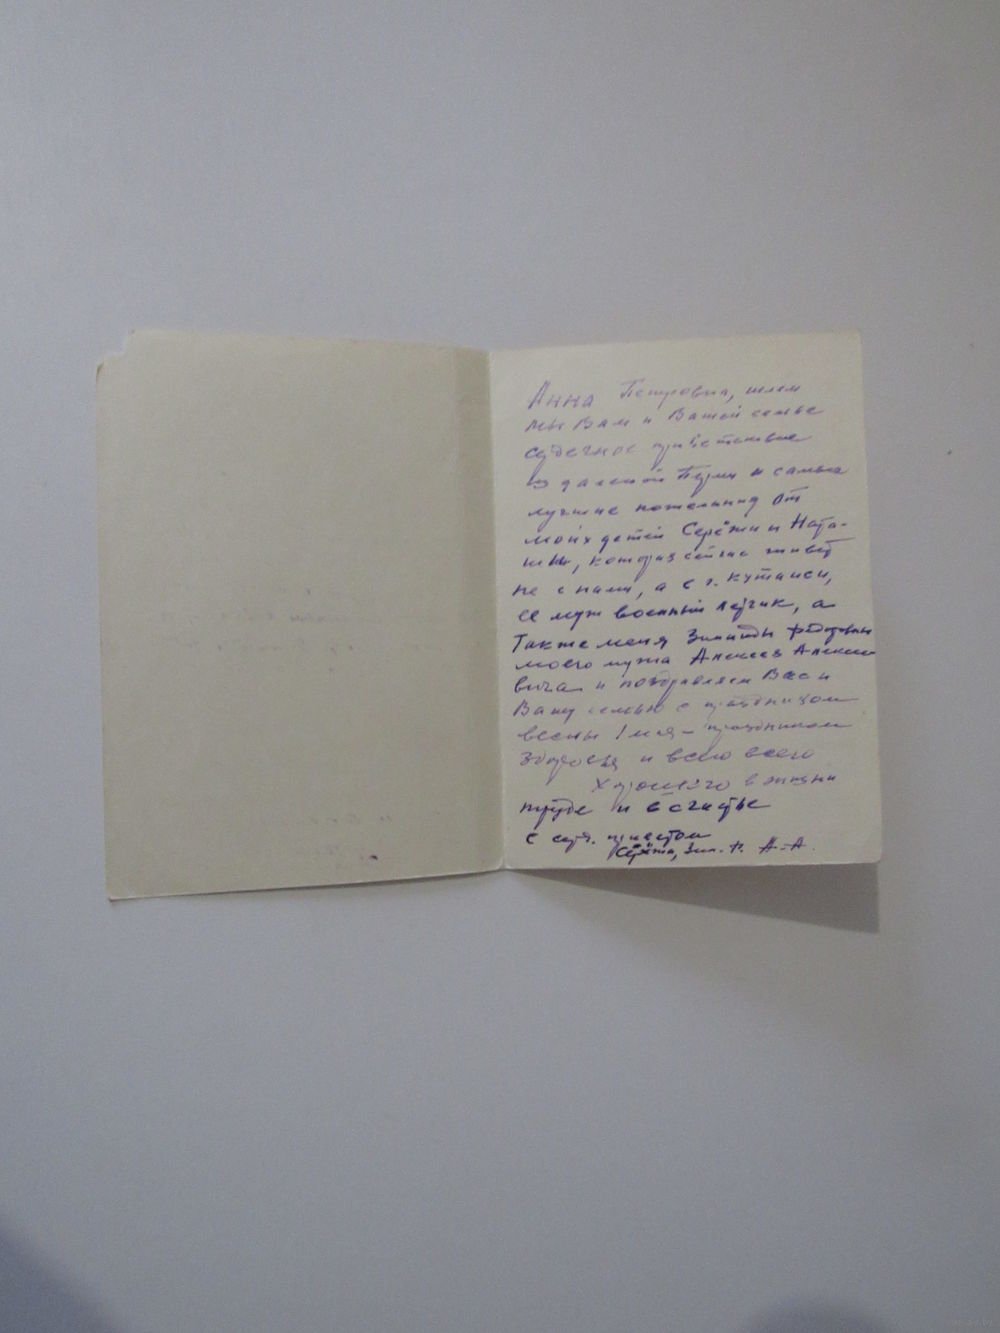 Анна Петровна, шлем
мы Вам и Вашей семье
сердечное приветствие
из далекой Перми и самые
лучшие пожелания от
моих детей Серёжи и Ната-
ши, которая сейчас живёт
не с нами, а в г. Кутаиси,
ее муж военный летчик, а
также меня Зинаиды Федоровны
моего мужа Алексея Алексее
вича и поздравляем Вас и
Вашу семью с праздником
весны 1 мая - праздником
здоровья и всего всего
хорошего в жизни
труде и в счастье
с серд. приветом
Серёжа, Зин. Ф. А-А.